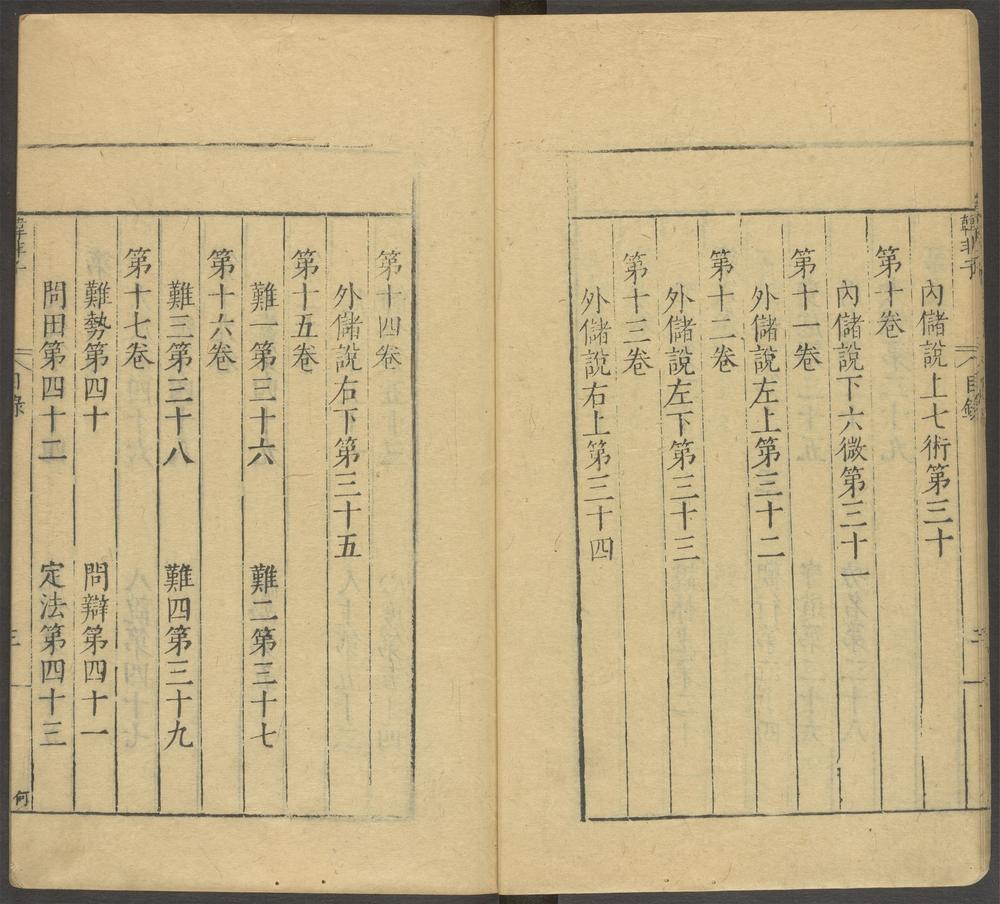 韓非子
目錄
二
內儲說上七術第三十
第十卷
內儲說下六微第三十一
第十一卷
外儲說左上第三十二
第十二卷
外儲說左下第三十三
第十三卷
外儲說右上第三十四
第十四卷
外儲說右下第三十五
第十五卷
難一第三十六
難二第三十七
第十六卷
難三第三十八
難四第三十九
第十七卷
難勢第四十
問辯第四十一
問田第四十二
定法第四十三
韓非子
目錄
三
何